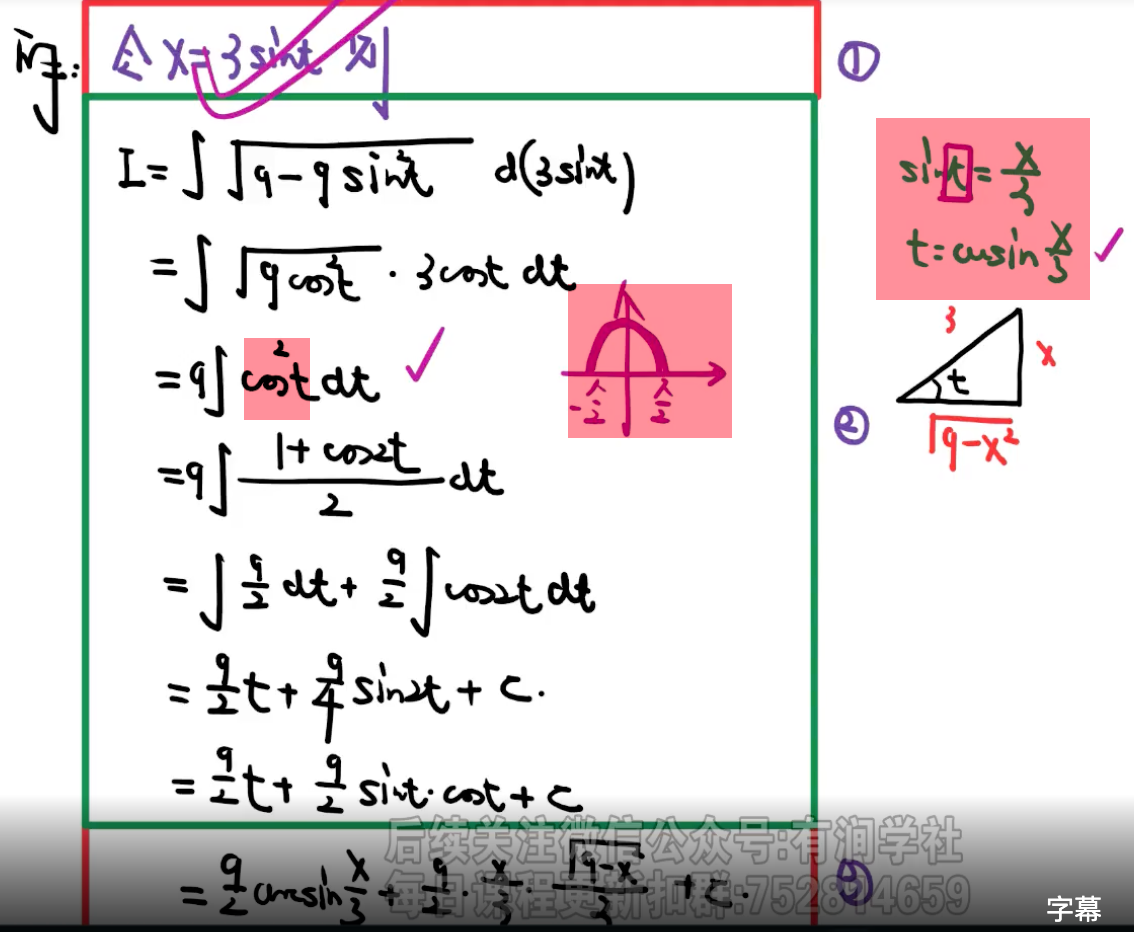 解: 令 x=3sint 则 ①
I=∫√(9-9sin²t) d(3sint)
=∫√(9cos²t)·3cost dt
=9∫cos²t dt
=9∫(1+cos2t)/2 dt
=∫9/2 dt+9/2∫cos2t dt
=9/2t+9/4sin2t+C.
=9/2t+9/2sint·cost+C
=9/2arcsin x/3+9/2·x/3·√(9-x²)/3+C. ③
sint=x/3
t=arcsin x/3
3
x
t
②
√(9-x²)
-π/2 π/2
后续关注微信公众号:有涧学社
每日课程更新扣群:752814659
字幕